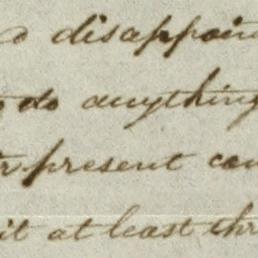 disappoin
to do anything
r present con
it at least thr